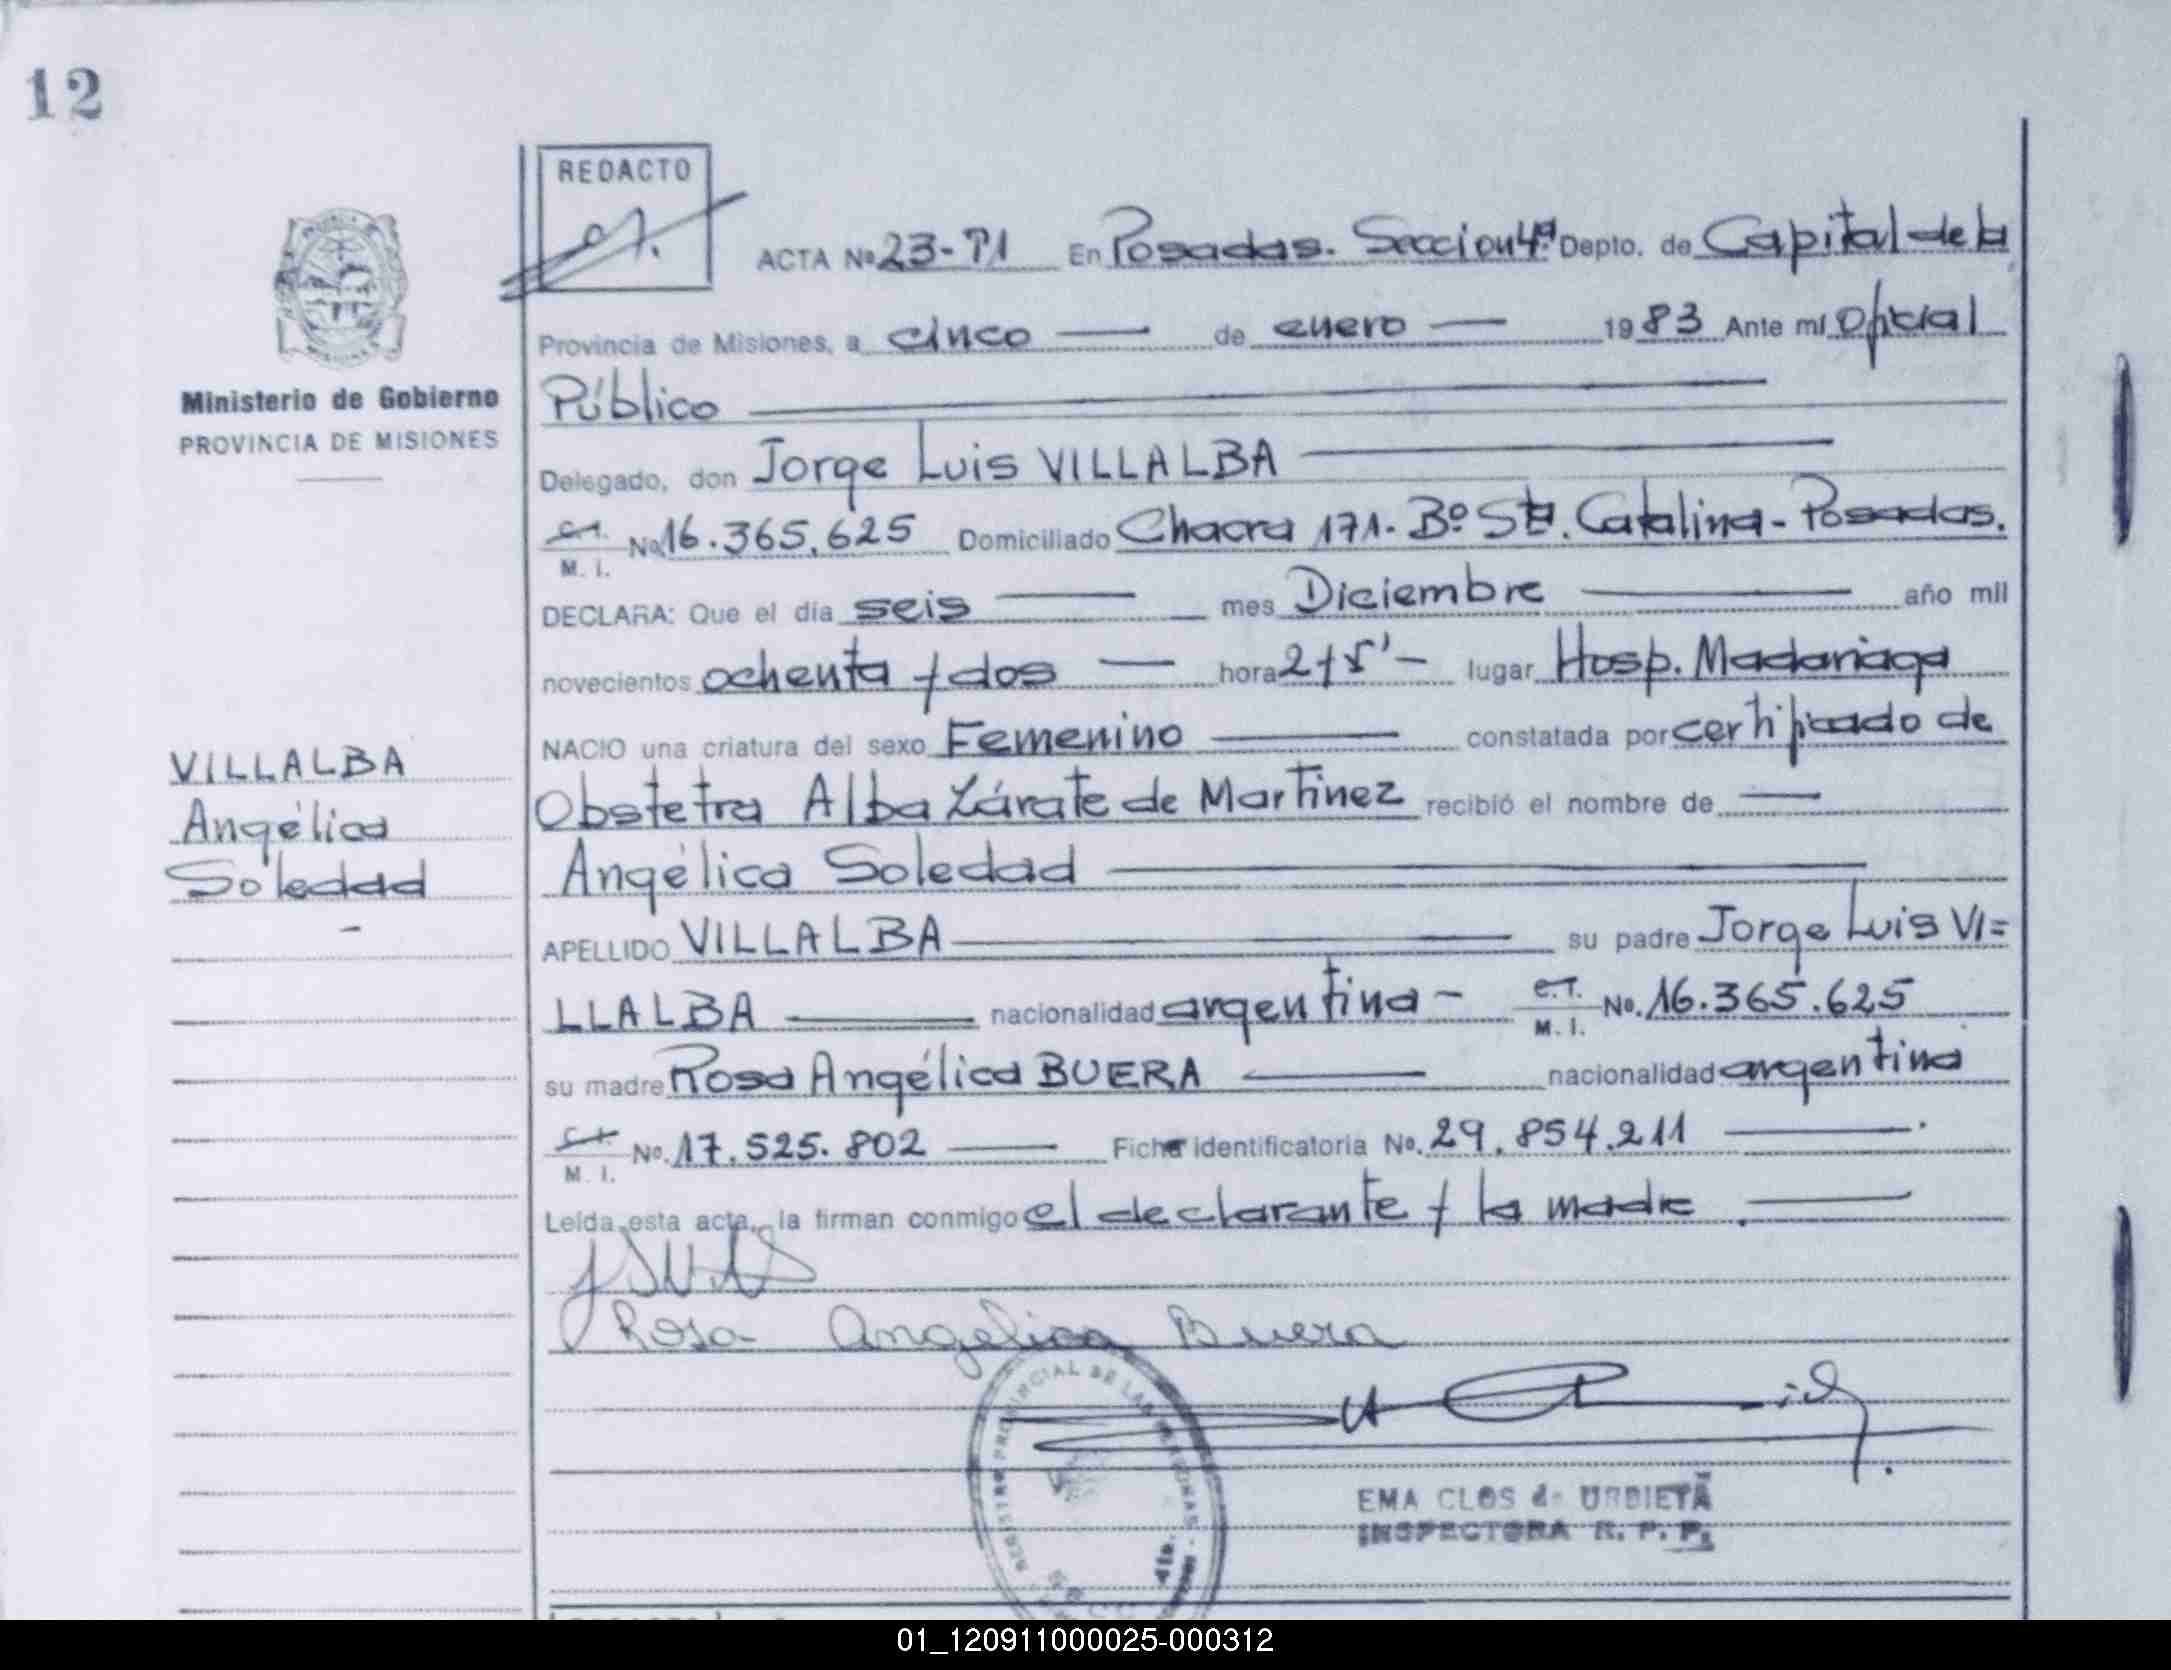 12
REDACTO
ACTA Nº 23-T1 En Posadas. Seccion 4ª Depto. de Capital de la
Provincia de Misiones, a cinco de enero 1983 Ante mí Oficial
Público
Ministerio de Gobierno
PROVINCIA DE MISIONES
Delegado, don Jorge Luis VILLALBA
M. I. No 16.365.625 Domiciliado Chacra 171- Bº Sta. Catalina - Posadas.
DECLARA: Que el día seis mes Diciembre año mil
novecientos ochenta y dos hora lugar Hosp. Madariaga
NACIO una criatura del sexo Femenino constatada por certificado de
Obstetra Alba Zárate de Martinez recibió el nombre de
VILLALBA
Angélica
Soledad
Angélica Soledad
APELLIDO VILLALBA su padre Jorge Luis VI=
LLALBA nacionalidad argentina - M. I. No. 16.365.625
su madre Rosa Angélica BUERA nacionalidad argentina
M. I. No. 17.525.802 Ficha identificatoria No. 29.854.211
Leída esta acta, la firman conmigo el declarante y la madre.
Rosa Angelica Buera
REGISTRO PROVINCIAL DE LAS PERSONAS
EMA CLOS de URBIETA
INSPECTORA R. P. P.
01_120911000025-000312